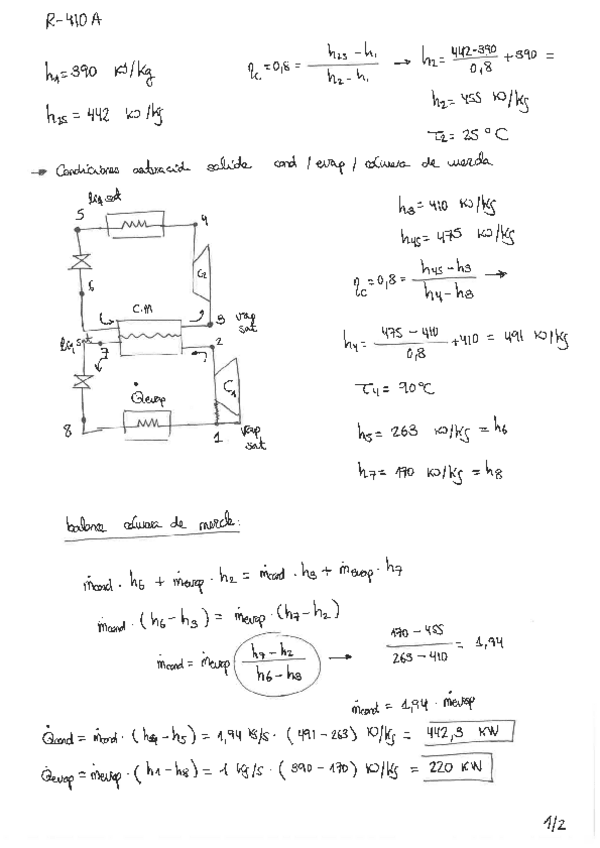 R-410A
h1 = 390 KJ/kg
ηc = 0,8 = (h2s - h1) / (h2 - h1) → h2 = (442-390) / 0,8 + 390 =
h2s = 442 KJ/kg
h2 = 455 KJ/kg
T2 = 25 °C
→ Condiciones saturación salida cond / evap / cámara de mezcla
liq sat
5
4
6
C2
C.M
3 vap sat
liq sat
7
2
8
Q̇evap
C1
1 vap sat
h3 = 410 KJ/kg
h4s = 475 KJ/kg
ηc = 0,8 = (h4s - h3) / (h4 - h3) →
h4 = (475 - 410) / 0,8 + 410 = 491 KJ/kg
T4 = 90°C
h5 = 263 KJ/kg = h6
h7 = 170 KJ/kg = h8
balance cámara de mezcla:
ṁcond · h6 + ṁevap · h2 = ṁcond · h3 + ṁevap · h7
ṁcond · (h6 - h3) = ṁevap · (h7 - h2)
ṁcond = ṁevap (h7 - h2) / (h6 - h3) → (170 - 455) / (263 - 410) = 1,94
ṁcond = 1,94 · ṁevap
Q̇cond = ṁcond · (h4 - h5) = 1,94 kg/s · (491 - 263) KJ/kg = 442,3 KW
Q̇evap = ṁevap · (h1 - h8) = 1 kg/s · (390 - 170) KJ/kg = 220 KW
1/2